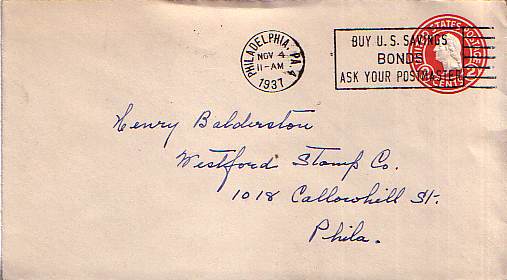 PHILADELPHIA, PA. 4
NOV 4
11-AM
1937
BUY U.S. SAVINGS
BONDS
ASK YOUR POSTMASTER
UNITED STATES POSTAGE
2 CENTS 2
Henry Balderston
Westford Stamp Co.
1018 Callowhill St.
Phila.